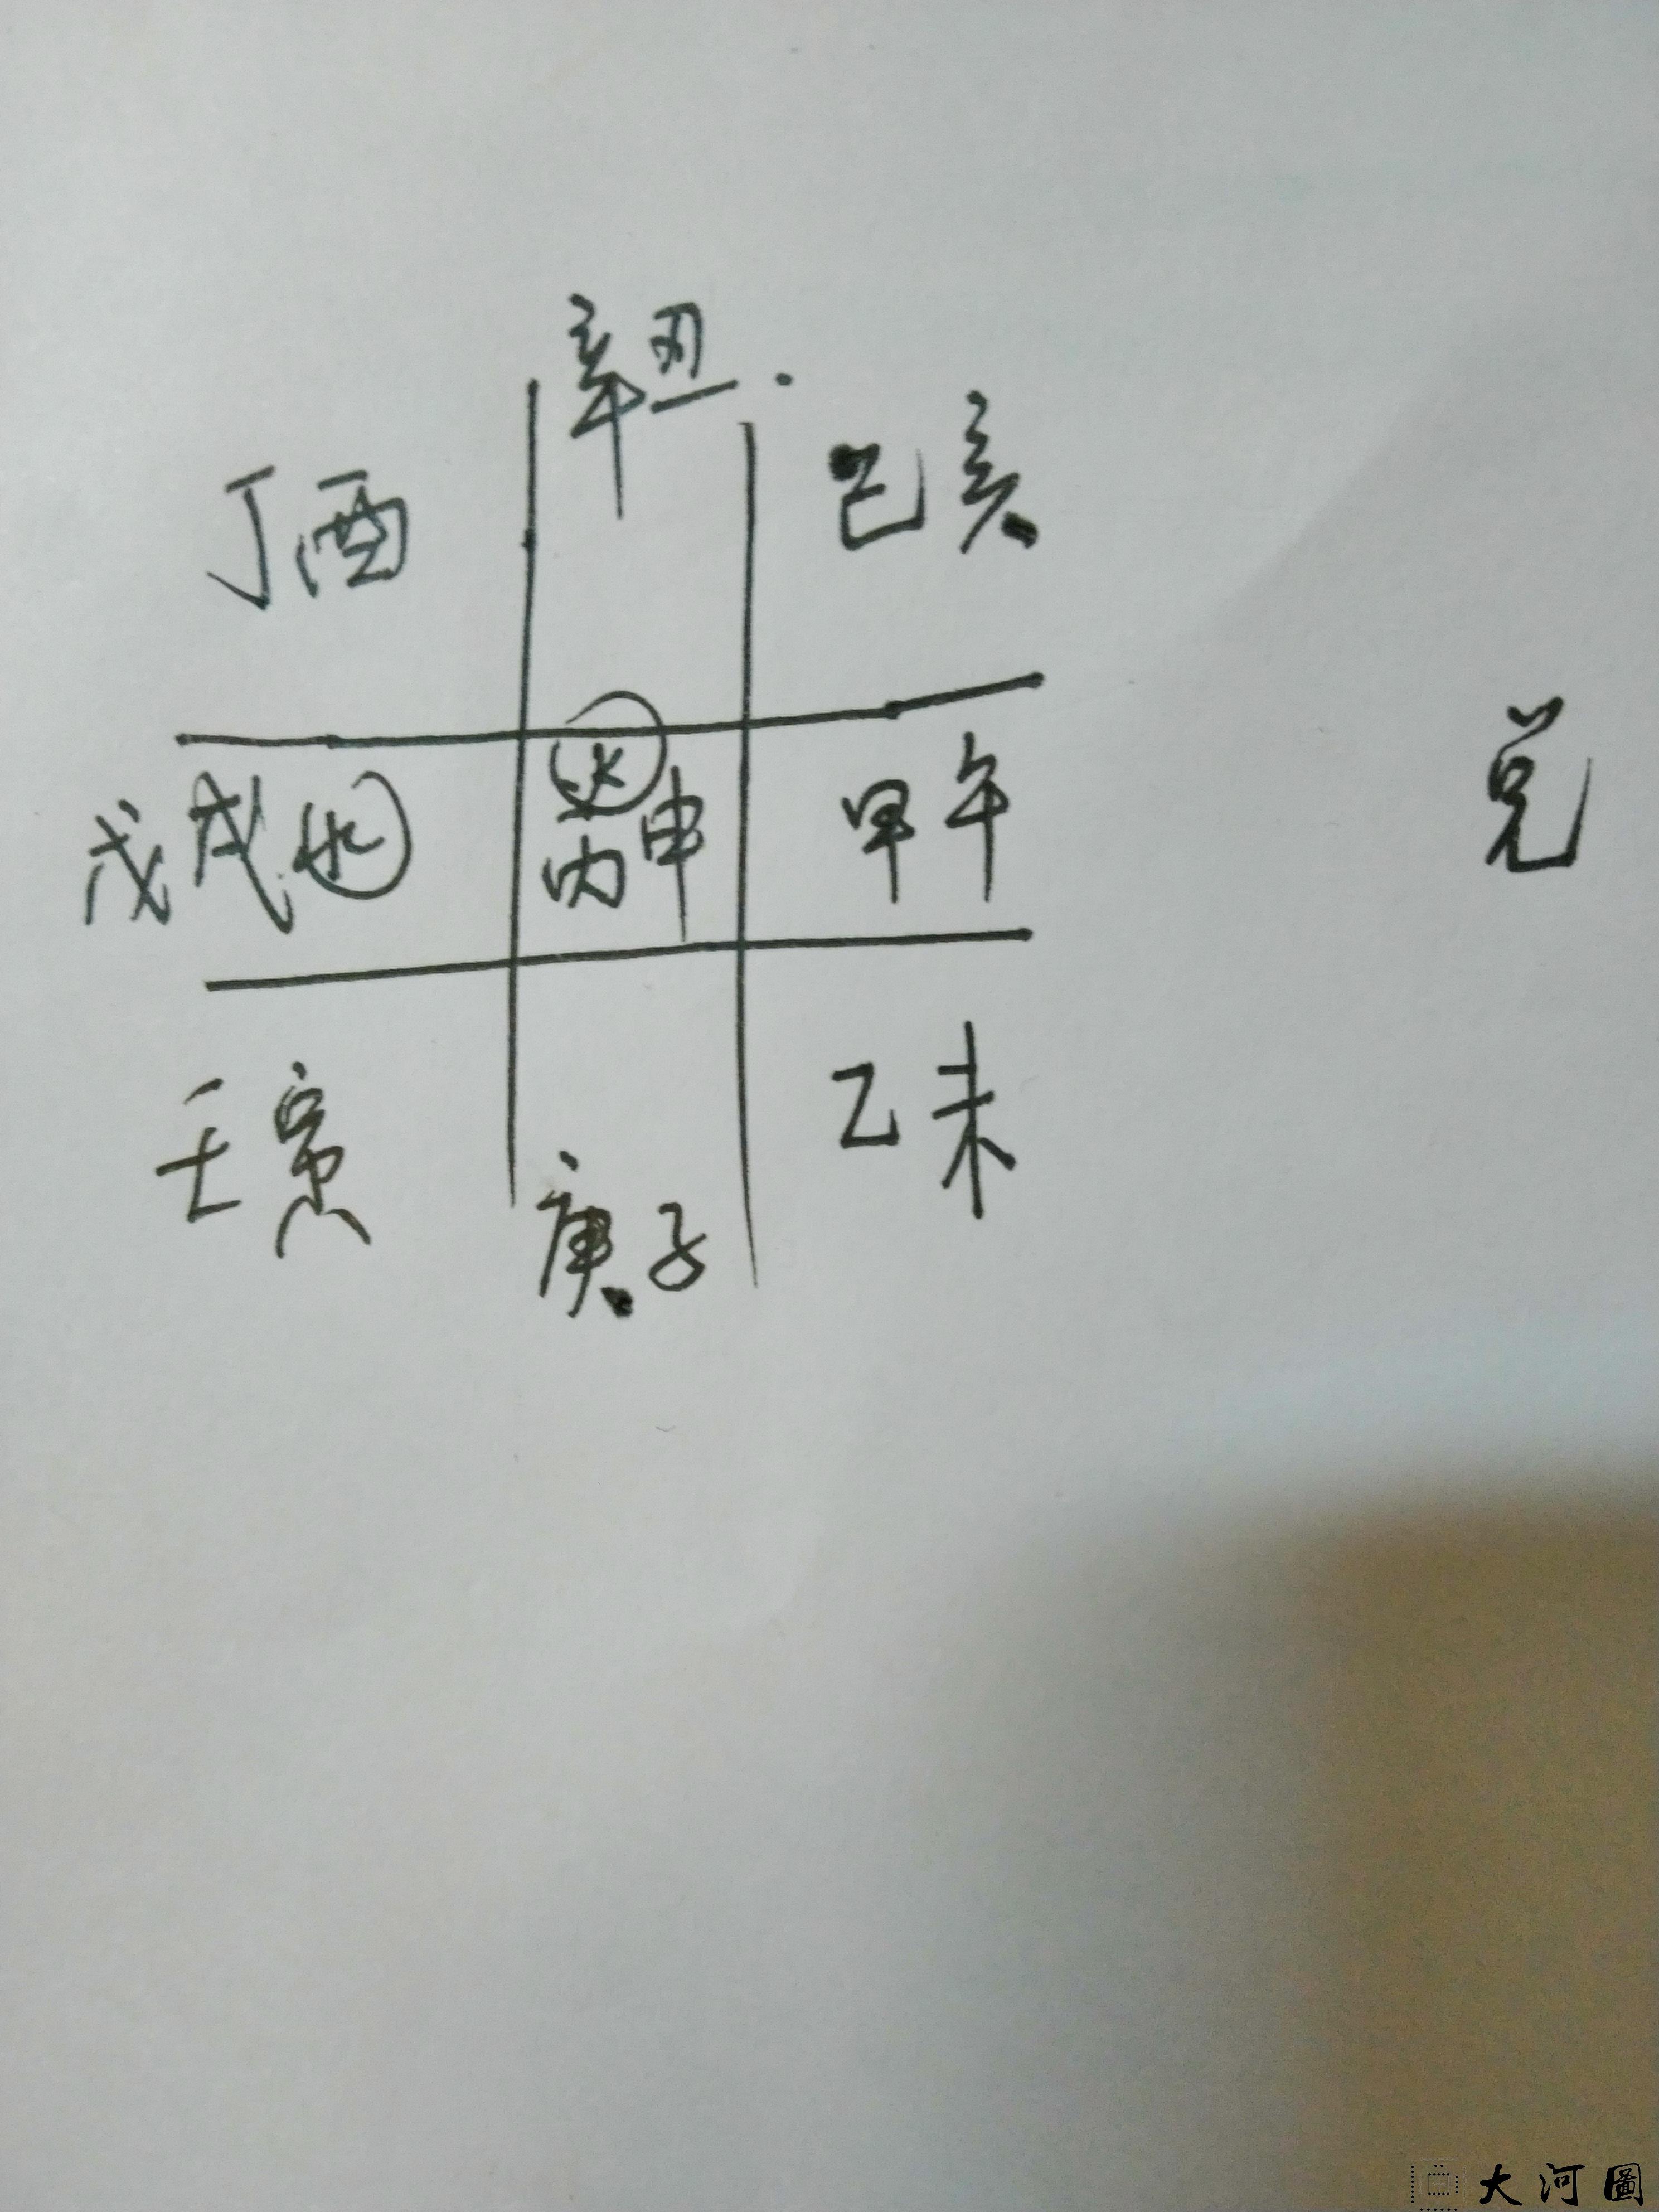 辛丑.
丁酉 己亥
戊戌 水 火 丙申 甲午 兑
壬寅 庚子 乙未
大河圖